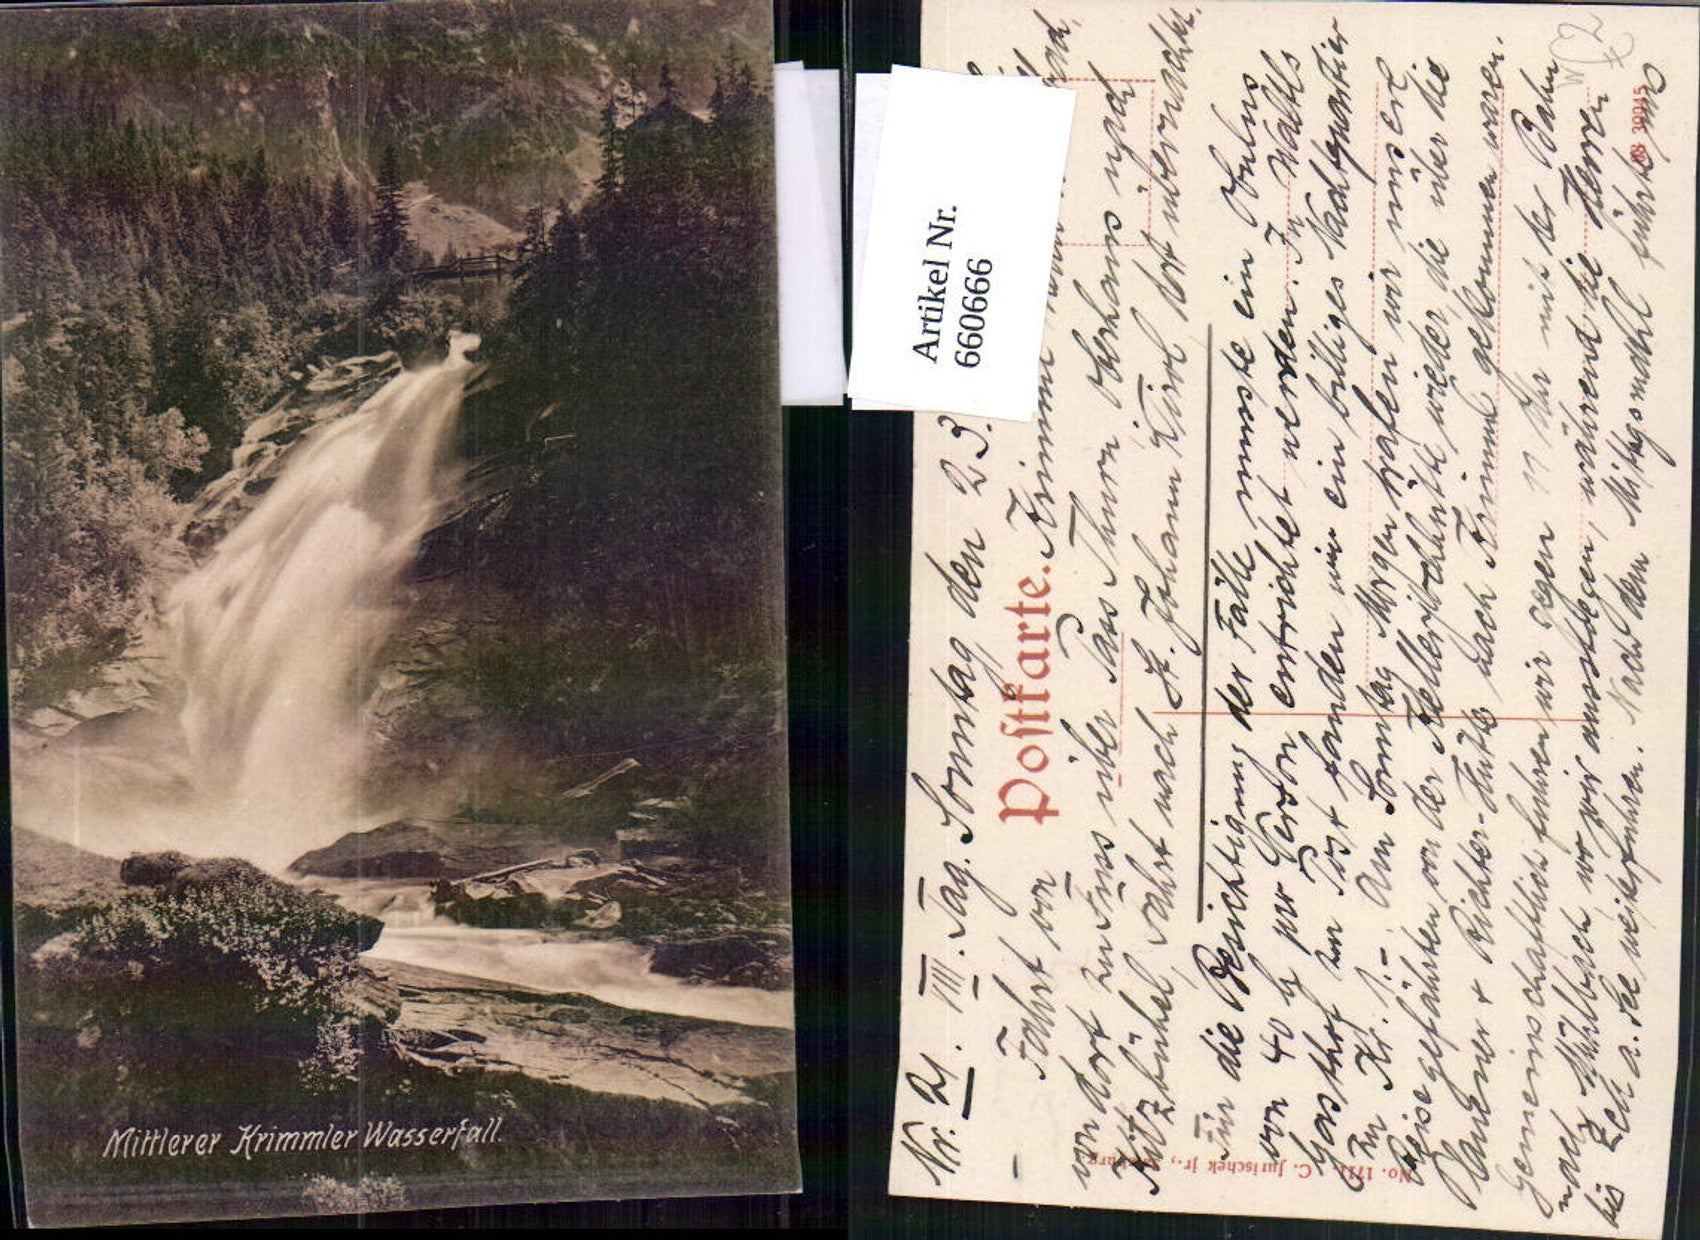 Mittlerer Krimmler Wasserfall.
Artikel Nr.
6606666
Nr. 21. VIII. Tag. Sonntag den 23.
Postkarte.
Fahrt von Krimml
von dort zu Fuss über Pass Thurn Oberhaus nach
Kitzbühel Fahrt nach St. Johann Tirol dort übernachtet.
Für die Besichtigung der Fälle musste ein Obulus
von 40 h pro Person entrichtet werden. In Waltls
Gasthof zur Post fanden wir ein billiges Nachtquartier
zu Kr. 1.- Am Sonntag Morgen trafen wir unsere
Reisegefährten von der wieder die über die
Plauener & Richter-Hütte nach Krimml gekommen waren.
Gemeinschaftlich fuhren wir gegen 11 Uhr mit der Bahn
nach Mühlbach wo wir ausstiegen, während die Herren
bis Zell a. See weiterfuhren. Nach dem Mittagsmahl führte uns
No. 1711 C. Jurischek jr., Salzburg
39945